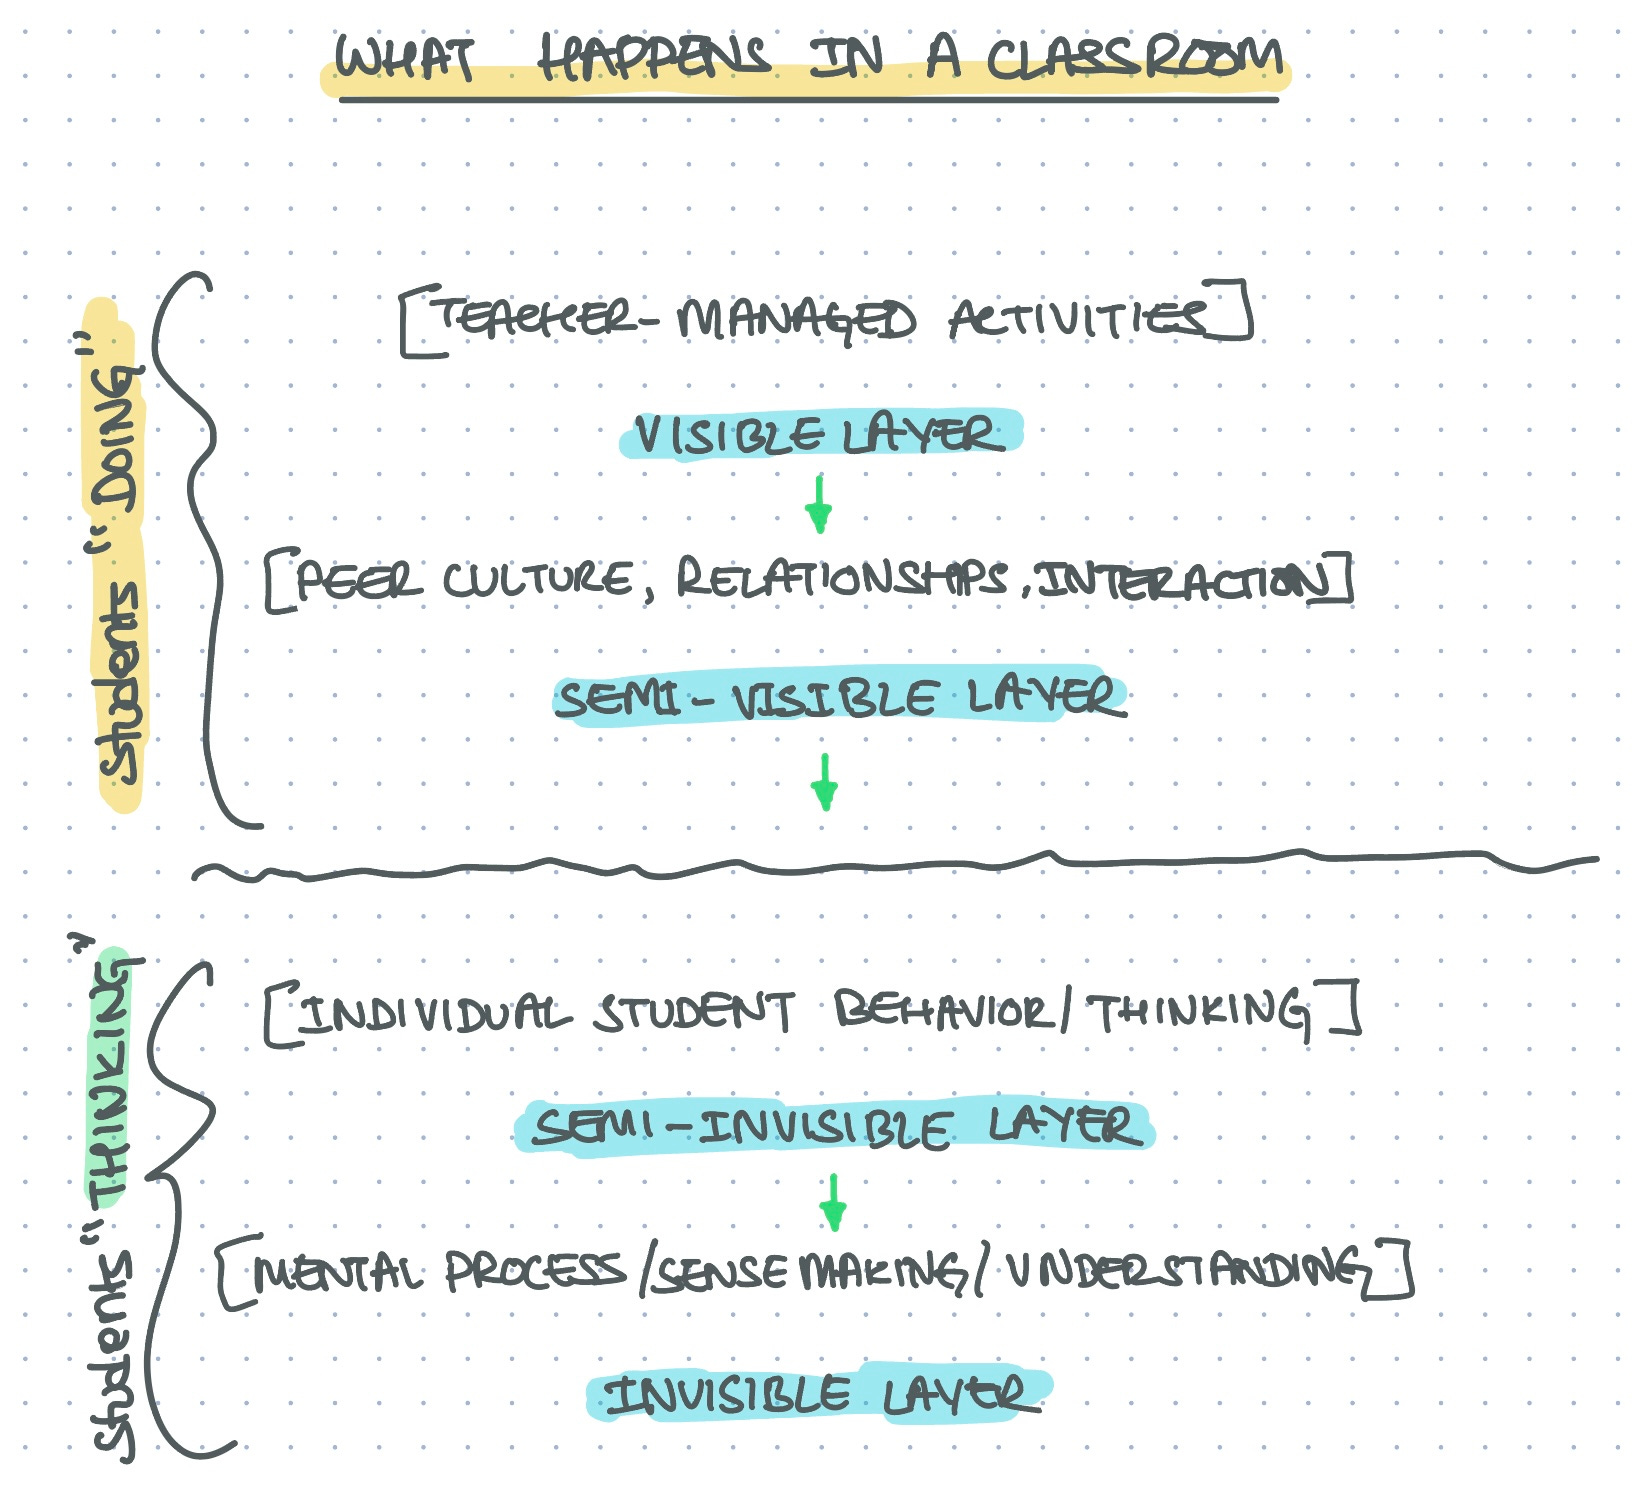 WHAT HAPPENS IN A CLASSROOM
students "DOING"
[TEACHER-MANAGED ACTIVITIES]
VISIBLE LAYER
[PEER CULTURE, RELATIONSHIPS, INTERACTION]
SEMI-VISIBLE LAYER
students "THINKING"
[INDIVIDUAL STUDENT BEHAVIOR/THINKING]
SEMI-INVISIBLE LAYER
[MENTAL PROCESS/SENSEMAKING/UNDERSTANDING]
INVISIBLE LAYER